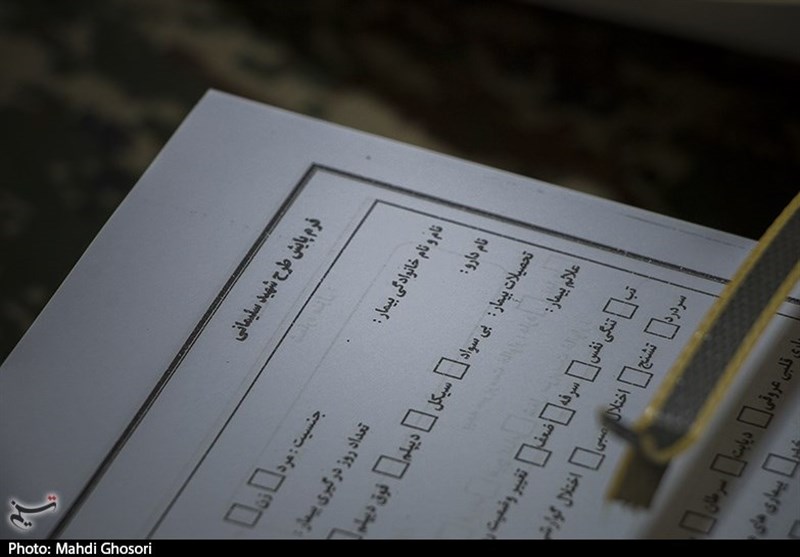 فرم پایش طرح شهید سلیمانی
نام و نام خانوادگی بیمار :
جنسیت : مرد □ زن □
نام دارو :
تعداد روز درگیری بیمار :
تحصیلات بیمار : بی سواد □ سیکل □ دیپلم □ فوق دیپلم □
علائم بیمار :
تب □ تنگی نفس □ سرفه □ ضعف □ تغییر وضعیت
سردرد □ تشنج □ اختلال □ اختلال گوارشی
قلبی عروقی □ دیابت □ سرطان □
بیماری های
تسنیم
Photo: Mahdi Ghosori